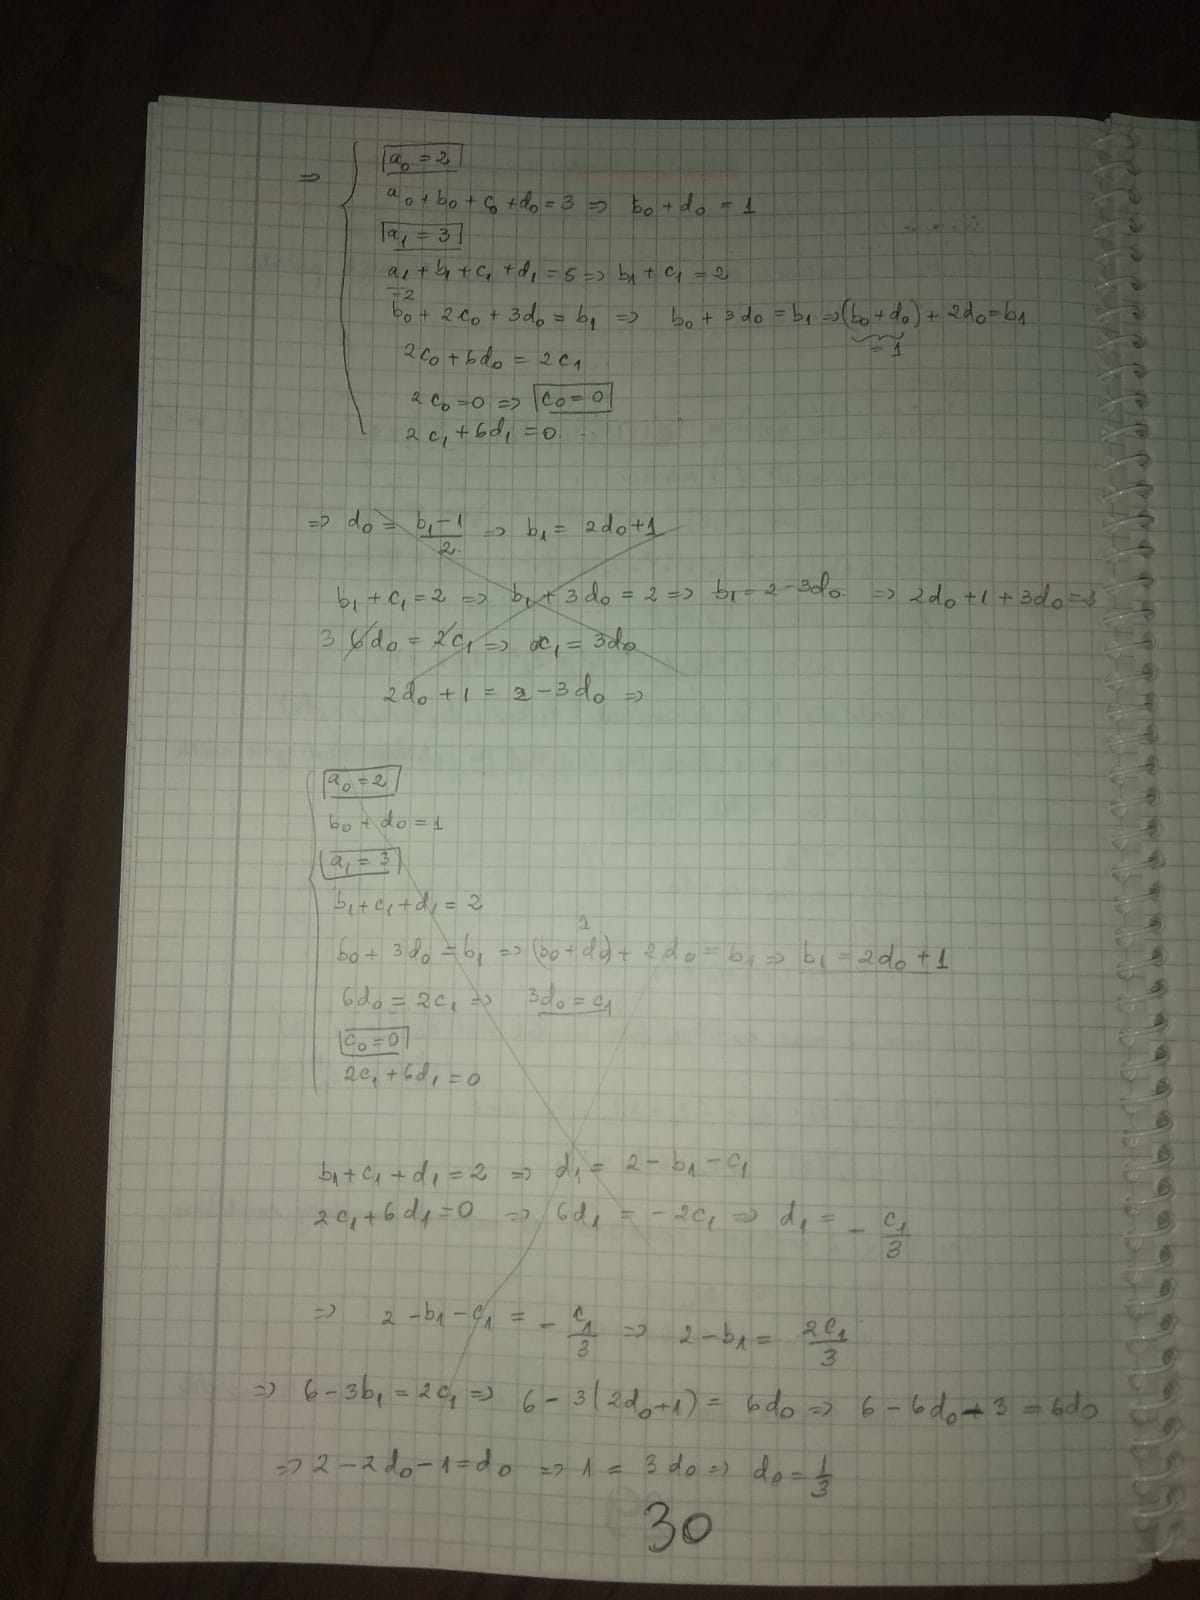 ⇒ a₀ = 2
a₀ + b₀ + c₀ + d₀ = 3 ⇒ b₀ + d₀ = 1
a₁ = 3
a₁ + b₁ + c₁ + d₁ = 5 ⇒ b₁ + c₁ = 2
=2
b₀ + 2c₀ + 3d₀ = b₁ ⇒ b₀ + 3d₀ = b₁ ⇒ (b₀ + d₀) + 2d₀ = b₁
= 1
2c₀ + 6d₀ = 2c₁
2c₀ = 0 ⇒ c₀ = 0
2c₁ + 6d₁ = 0
⇒ d₀ = (b₁ - 1)/2 ⇒ b₁ = 2d₀ + 1
b₁ + c₁ = 2 ⇒ b₁ + 3d₀ = 2 ⇒ b₁ = 2 - 3d₀ ⇒ 2d₀ + 1 + 3d₀ =
3 6d₀ = 2c₁ ⇒ c₁ = 3d₀
2d₀ + 1 = 2 - 3d₀ ⇒
a₀ = 2
b₀ + d₀ = 1
a₁ = 3
b₁ + c₁ + d₁ = 2
1
b₀ + 3d₀ = b₁ ⇒ (b₀ + d₀) + 2d₀ = b₁ ⇒ b₁ = 2d₀ + 1
6d₀ = 2c₁ ⇒ 3d₀ = c₁
c₀ = 0
2c₁ + 6d₁ = 0
b₁ + c₁ + d₁ = 2 ⇒ d₁ = 2 - b₁ - c₁
2c₁ + 6d₁ = 0 ⇒ 6d₁ = -2c₁ ⇒ d₁ = - c₁/3
⇒ 2 - b₁ - c₁ = - c₁/3 ⇒ 2 - b₁ = 2c₁/3
⇒ 6 - 3b₁ = 2c₁ ⇒ 6 - 3(2d₀ + 1) = 6d₀ ⇒ 6 - 6d₀ - 3 = 6d₀
⇒ 2 - 2d₀ - 1 = d₀ ⇒ 1 = 3d₀ ⇒ d₀ = 1/3
30